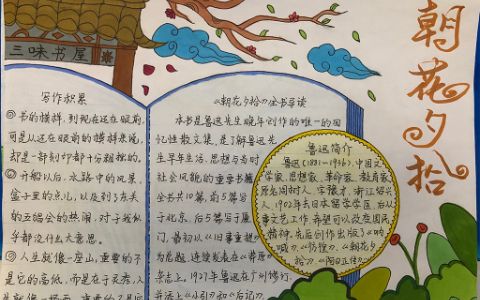 朝花夕拾
三味书屋
写作积累
书的模样,到现在还在眼前,
可是从还在眼前的模样来说,
却是一部刻印都十分粗拙的。
开船以后,水路中的风景,
盒子里的点心,以及到了东关
的五猖会的热闹,对于我似
乎都没什么大意思。
人生就像一座山,重要的不
是它的高低,而是在于灵秀,人
《朝花夕拾》全书导读
本书是鲁迅先生晚年创作的唯一的回
忆性散文集,是了解鲁迅先
生早年生活、思想与当时
社会风貌的重要书籍
全书共10篇,前5篇写
于北京,后5篇写于厦
门,最初以《旧事重提》
为总题,连续发表在《莽原》
杂志上。1927年鲁迅在广州修订,
并添上《小引》和《后记》
鲁迅简介
鲁迅(1881-1936),中国文
学家、思想家、革命家、教育家
原名周树人,字豫才,浙江绍兴
人,1902年去日本留学学医,后从
事文艺工作,希望以改变国民
精神。先后创作出版了《呐
喊》《彷徨》、《朝花夕
拾》《阿Q正传》